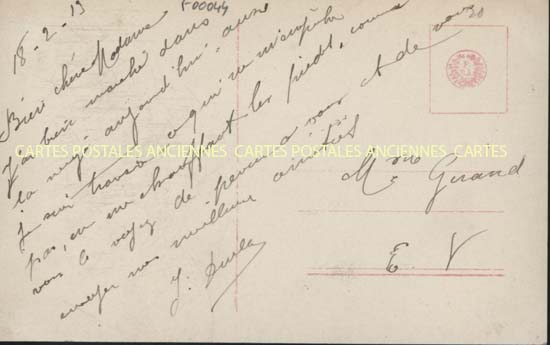 18-2-13
F00044
20
Bien chère Madame
J'ai bien marché dans
la neige aujourd'hui, aussi
je suis travers ce qui ne m'empêche
pas, en me chauffant les pieds, comme
vous le voyez de penser a vous et de vous
envoyer mes meilleures amitiés
J.
CARTES POSTALES ANCIENNES CARTES POSTALES ANCIENNES CARTES
Mme Girand
E. V